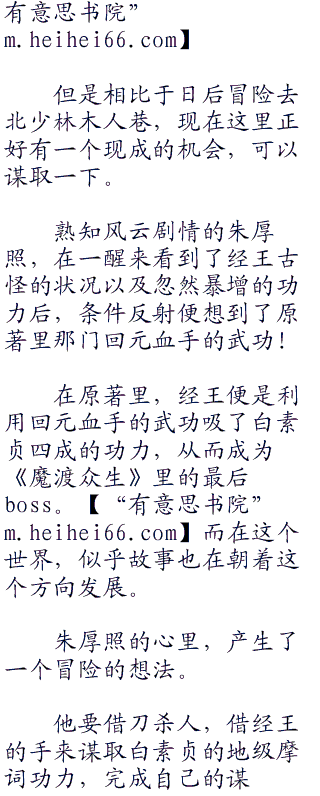 有意思书院”
m.heihei66.com】
但是相比于日后冒险去
北少林木人巷，现在这里正
好有一个现成的机会，可以
谋取一下。
熟知风云剧情的朱厚
照，在一醒来看到了经王古
怪的状况以及忽然暴增的功
力后，条件反射便想到了原
著里那门回元血手的武功！
在原著里，经王便是利
用回元血手的武功吸了白素
贞四成的功力，从而成为
《魔渡众生》里的最后
boss。【“有意思书院”
m.heihei66.com】而在这个
世界，似乎故事也在朝着这
个方向发展。
朱厚照的心里，产生了
一个冒险的想法。
他要借刀杀人，借经王
的手来谋取白素贞的地级摩
词功力，完成自己的谋